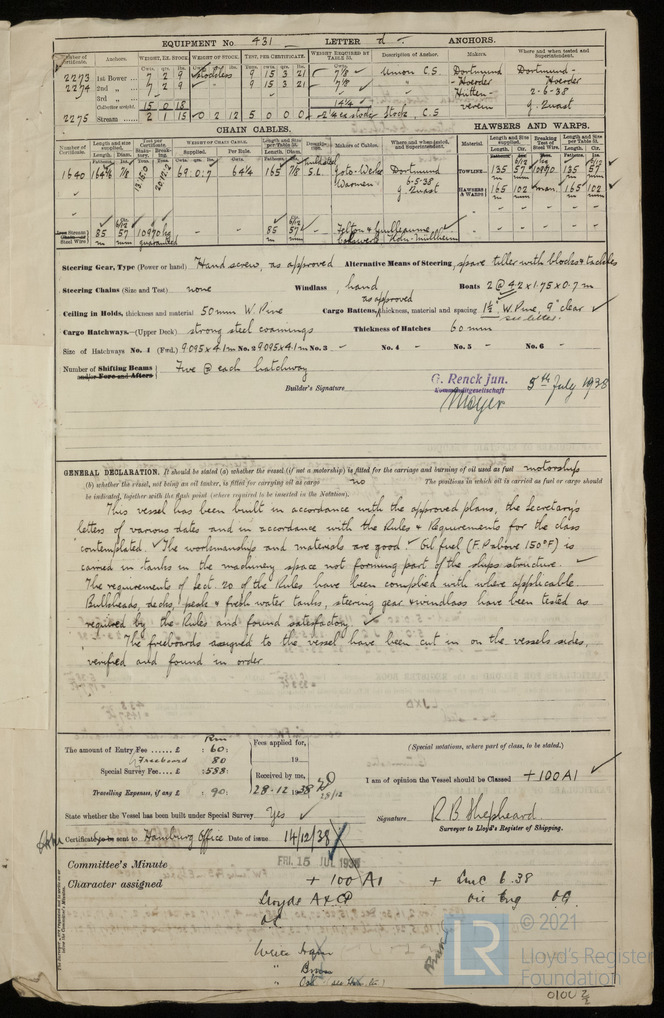 EQUIPMENT No. 431 LETTER d ANCHORS.
Number of Certificate. Anchors. WEIGHT, EX. STOCK WEIGHT OF STOCK. TEST, PER CERTIFICATE. WEIGHT REQUIRED BY TABLE 53. Description of Anchor. Makers. Where and when tested and Superintendent.
2273 1st Bower ... 7 2 9 Stockless 9 15 3 21 7/8 Union C.S. Dortmund Dortmund-
2274 2nd „ ... 7 2 9 9 15 3 21 7/8 " Hoerder Hoerder
3rd „ Hütten- 2-6-38
Collective weight. 15 0 18 14¼ verein g. Quast
2275 Stream ... 2 1 15 0 2 12 5 0 0 0 2¼ ex stock Stock C.S
CHAIN CABLES. HAWSERS AND WARPS.
Number of Certificate. Length and size supplied. Test per Certificate WEIGHT OF CHAIN CABLE. Length and Size per Table 53. Description. Makers of Cables. Where and when tested, and Superintendent. Material. Length and Size supplied. Breaking Test of Steel Wire. Length and Size per Table 53.
Length. Diam. Statutory. Breaking. Supplied. Per Rule. Length. Diam. Length. Cir. Length. Cir.
1640 7/8 69:0:7 64¼ 165 7/8 S.L. Dortmund TOWLINE... 135 57 10970 135 57
6-5-38 HAWSERS & WARPS 165 102 man. 165 102
g. Quast
Steel Wire 85 57 10970 kg 85 57 Felten & Guilleaume
m mm guaranteed m mm Köln-Mülheim
Steering Gear, Type (Power or hand) Hand screw, as approved Alternative Means of Steering spare tiller with blocks & tackles
Steering Chains (Size and Test) none Windlass hand Boats 2 @ 4.2 x 1.75 x 0.7 m
as approved
Ceiling in Holds, thickness and material 50 mm W. Pine Cargo Battens, thickness, material and spacing 1½" W. Pine, 9" clear
see letter.
Cargo Hatchways.—(Upper Deck) strong steel coamings Thickness of Hatches 60 mm
Size of Hatchways No. 1 (Fwd.) 9.095x4.1m No. 2 9.095x4.1m No. 3 " No. 4 " No. 5 " No. 6 "
Number of Shifting Beams Five @ each hatchway
and/or Fore and Afters
Builder's Signature G. Renck jun.
Kommanditgesellschaft
Meyer 5th July 1938
GENERAL DECLARATION. It should be stated (a) whether the vessel (if not a motorship) is fitted for the carriage and burning of oil used as fuel motorship
(b) whether the vessel, not being an oil tanker, is fitted for carrying oil as cargo no The positions in which oil is carried as fuel or cargo should
be indicated, together with the flash point (where required to be inserted in the Notation).
This vessel has been built in accordance with the approved plans, the Secretary's
letters of various dates and in accordance with the Rules & Requirements for the class
contemplated. The workmanship and materials are good. Oil fuel (F.P. above 150°F) is
carried in tanks in the machinery space not forming part of the ships structure.
The requirements of Sect. 20 of the Rules have been complied with where applicable.
Bulkheads, decks, peak & fresh water tanks, steering gear & windlass have been tested as
required by the Rules and found satisfactory.
The freeboards assigned to the vessel have been cut in on the vessels sides,
verified and found in order
Rm
The amount of Entry Fee ...... £ : 60: Fees applied for, (Special notations, where part of class, to be stated.)
Freeboard 80 19
Special Survey Fee....£ : 588: Received by me, I am of opinion the Vessel should be Classed +100A1
Travelling Expenses, if any £ : 90: 28.12.1938 28/12
State whether the Vessel has been built under Special Survey Yes Signature R B Shepheard
Surveyor to Lloyd's Register of Shipping.
Certificate to be sent to Hamburg Office Date of issue 14/12/38
Committee's Minute FRI. 15 JUL 1938
Character assigned + 100 A1 + LMC 6.38
Lloyds A & CP Oil Eng OG
Write
"
"
© 2021
LR Lloyd's Register
Foundation